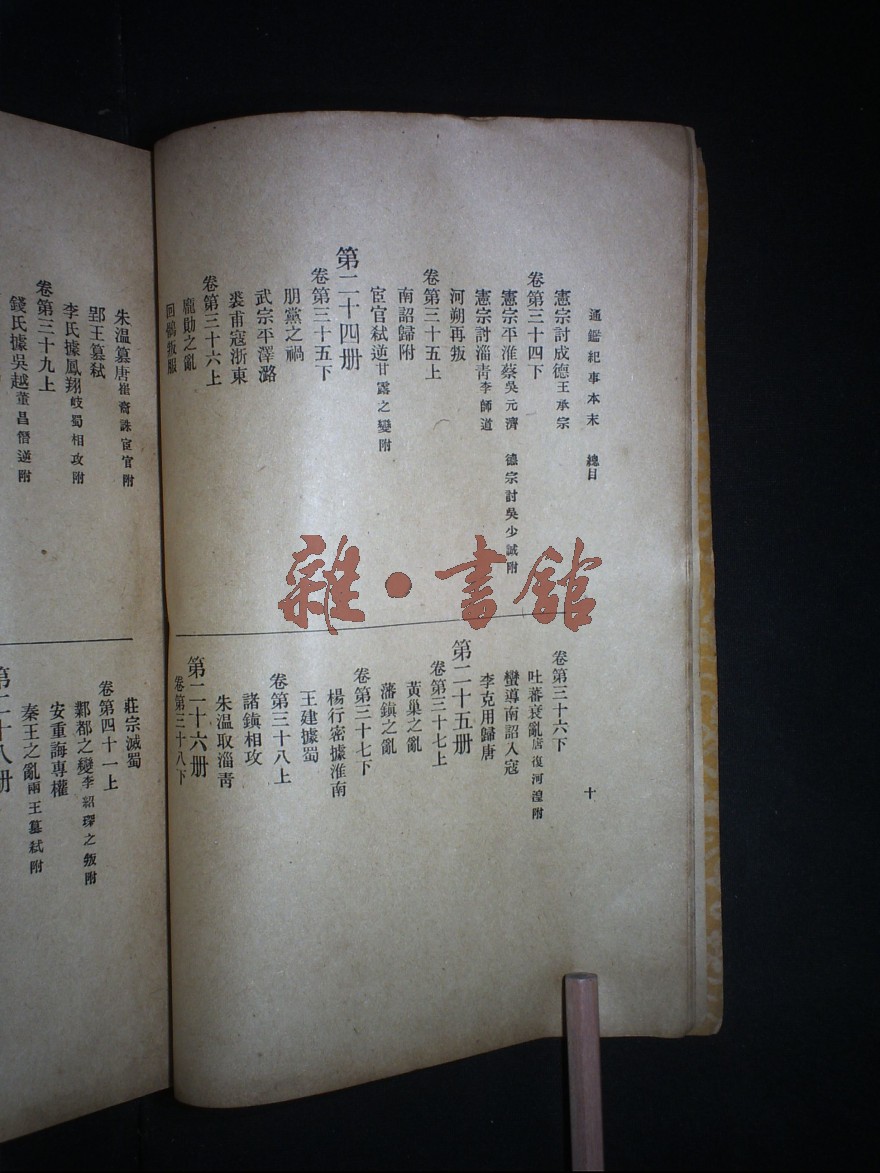 通鑑紀事本末　總目
憲宗討成德王承宗
卷第三十四下
憲宗平淮蔡吳元濟　德宗討吳少誠附
憲宗討淄青李師道
河朔再叛
卷第三十五上
南詔歸附
宦官弒逆甘露之變附
第二十四册
卷第三十五下
朋黨之禍
武宗平澤潞
裘甫寇浙東
卷第三十六上
龐勛之亂
回鶻叛服
十
卷第三十六下
吐蕃衰亂唐復河湟附
蠻導南詔入寇
李克用歸唐
第二十五册
卷第三十七上
黃巢之亂
藩鎮之亂
卷第三十七下
楊行密據淮南
王建據蜀
卷第三十八上
諸鎮相攻
朱溫取淄青
第二十六册
卷第三十八下
朱溫篡唐崔胤誅宦官附
郢王篡弒
李氏據鳳翔岐蜀相攻附
卷第三十九上
錢氏據吳越董昌僭逆附
莊宗滅蜀
卷第四十一上
鄴都之變李紹琛之叛附
安重誨專權
秦王之亂兩王篡弒附
第二十八册
雜·書館